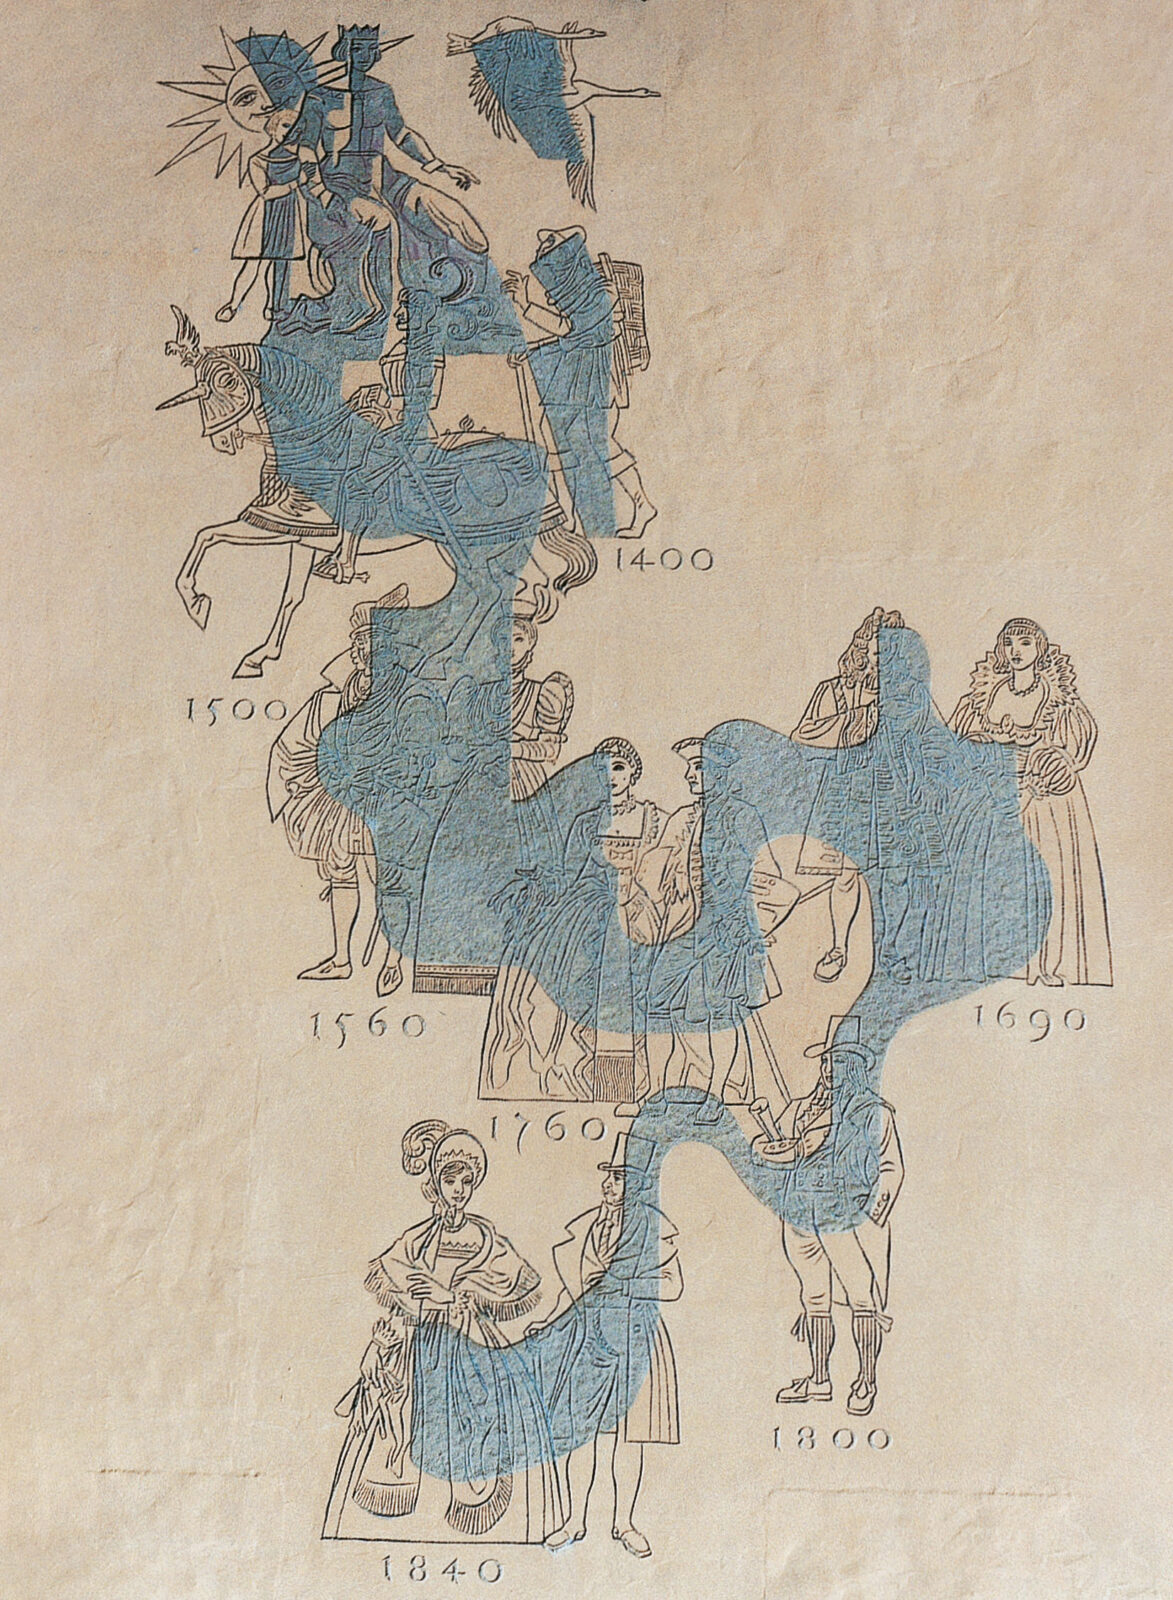 1400
1500
1560
1690
1760
1800
1840